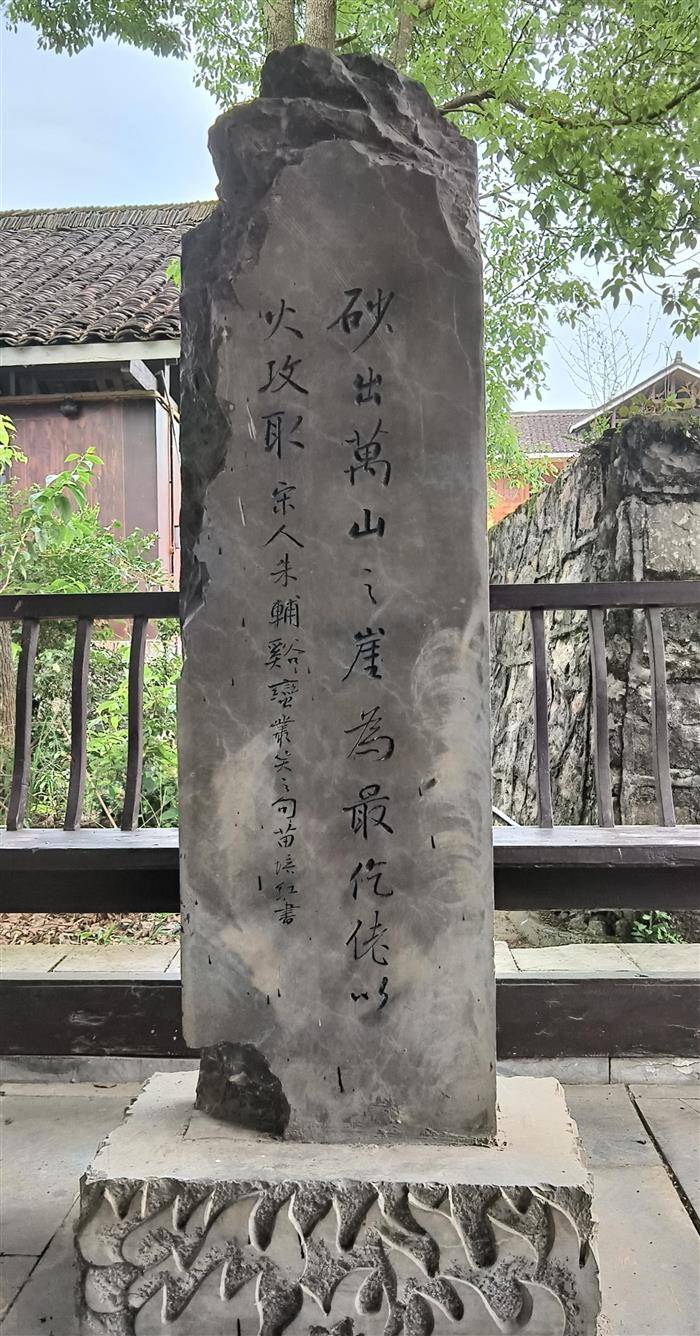 砂出萬山之崖為最仡佬以
火攻取 宋人朱輔谿蠻叢笑之句苗培紅書